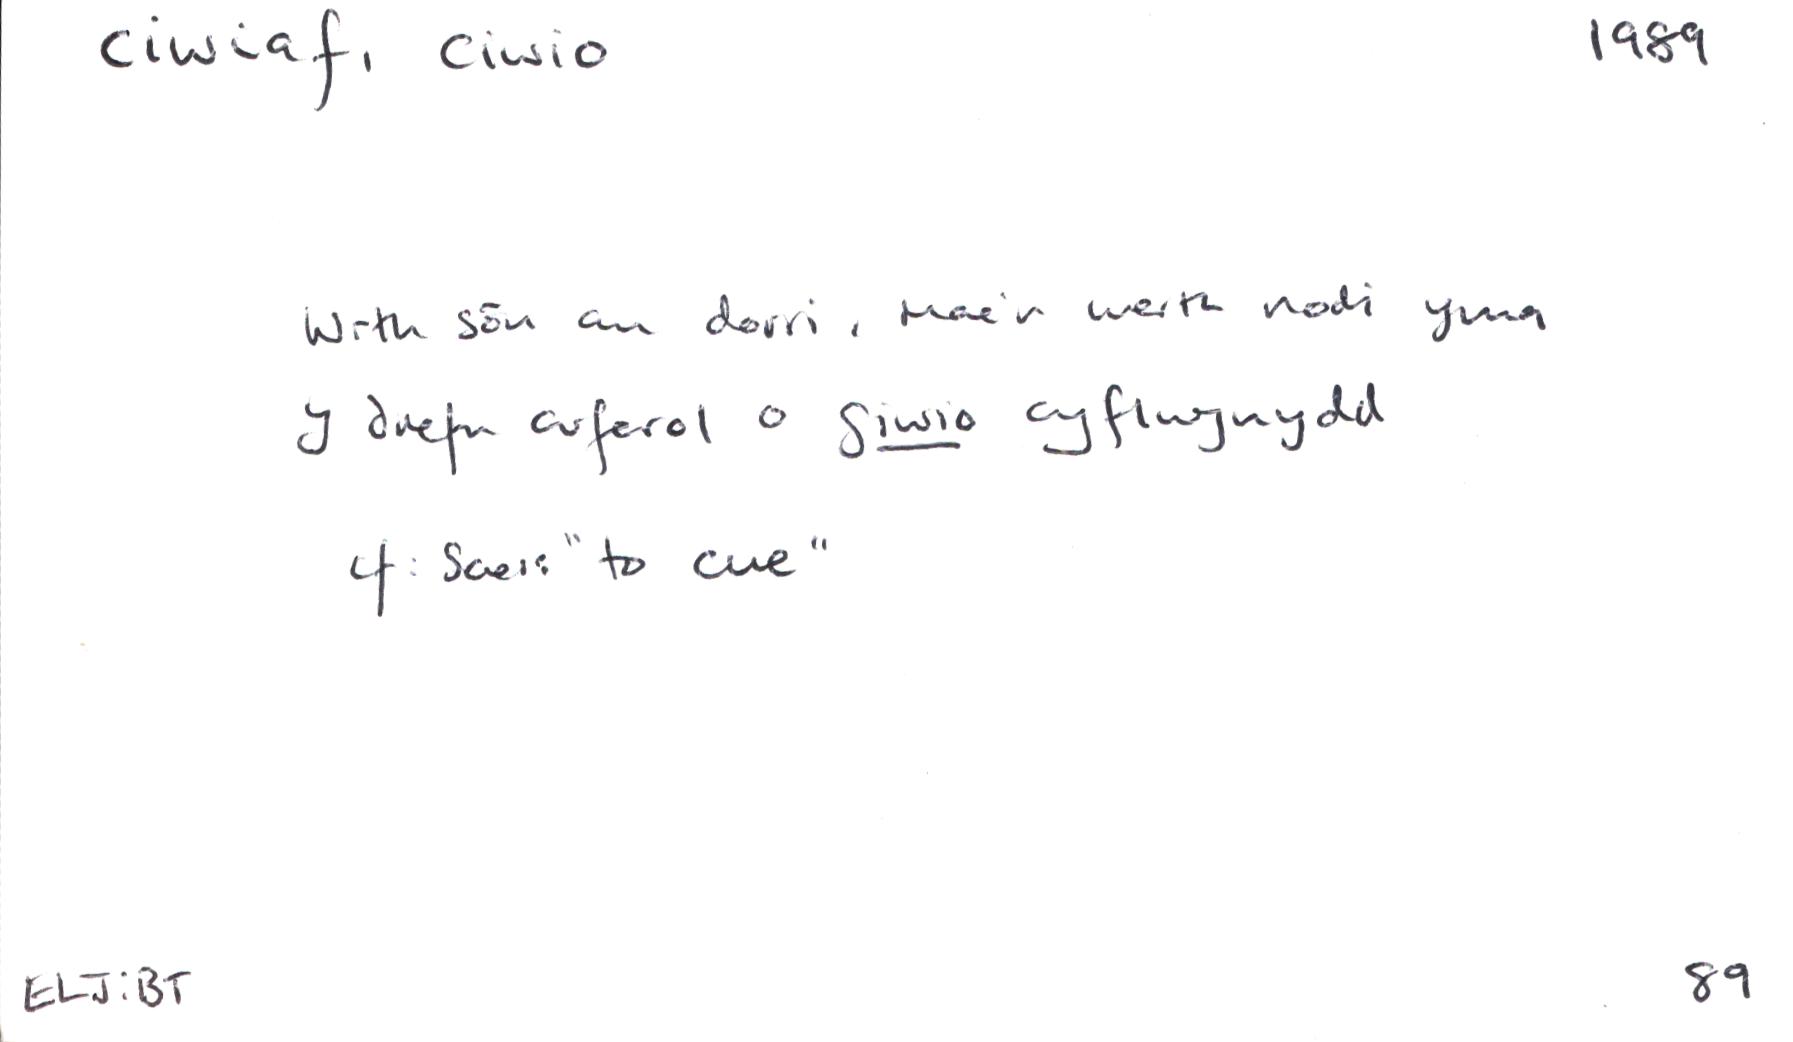 ciwiaf, ciwio 1989
Wrth sôn am dorri, mae'n werth nodi yma
y drefn arferol o giwio cyflwynydd
cf: Saes: "to cue"
ELJ:BT 89